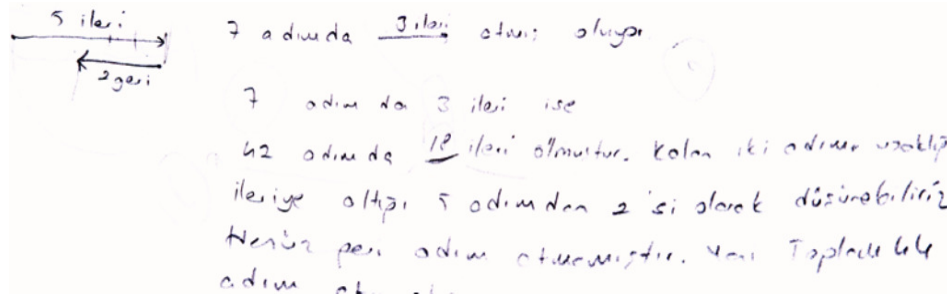 5 ileri
2 geri
7 adımda 3 ileri atmış oluyor
7 adımda 3 ileri ise
42 adımda 18 ileri olmuştur. Kalan iki adımın uzaklığı
ileriye attığı 5 adımdan 2'si olarak düşünebiliriz
Henüz geri adım atmamıştır. Yani Toplam 44
adım